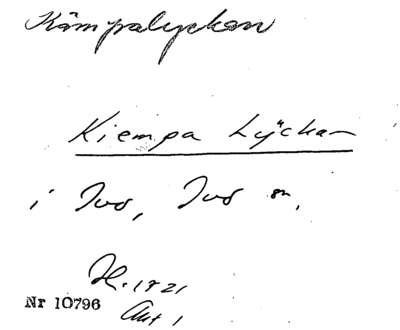 Kämpalyckan
Kiempa Lÿckan
i Ivö, Ivö sn,
H. 1821
Nr 10796
Akt 1